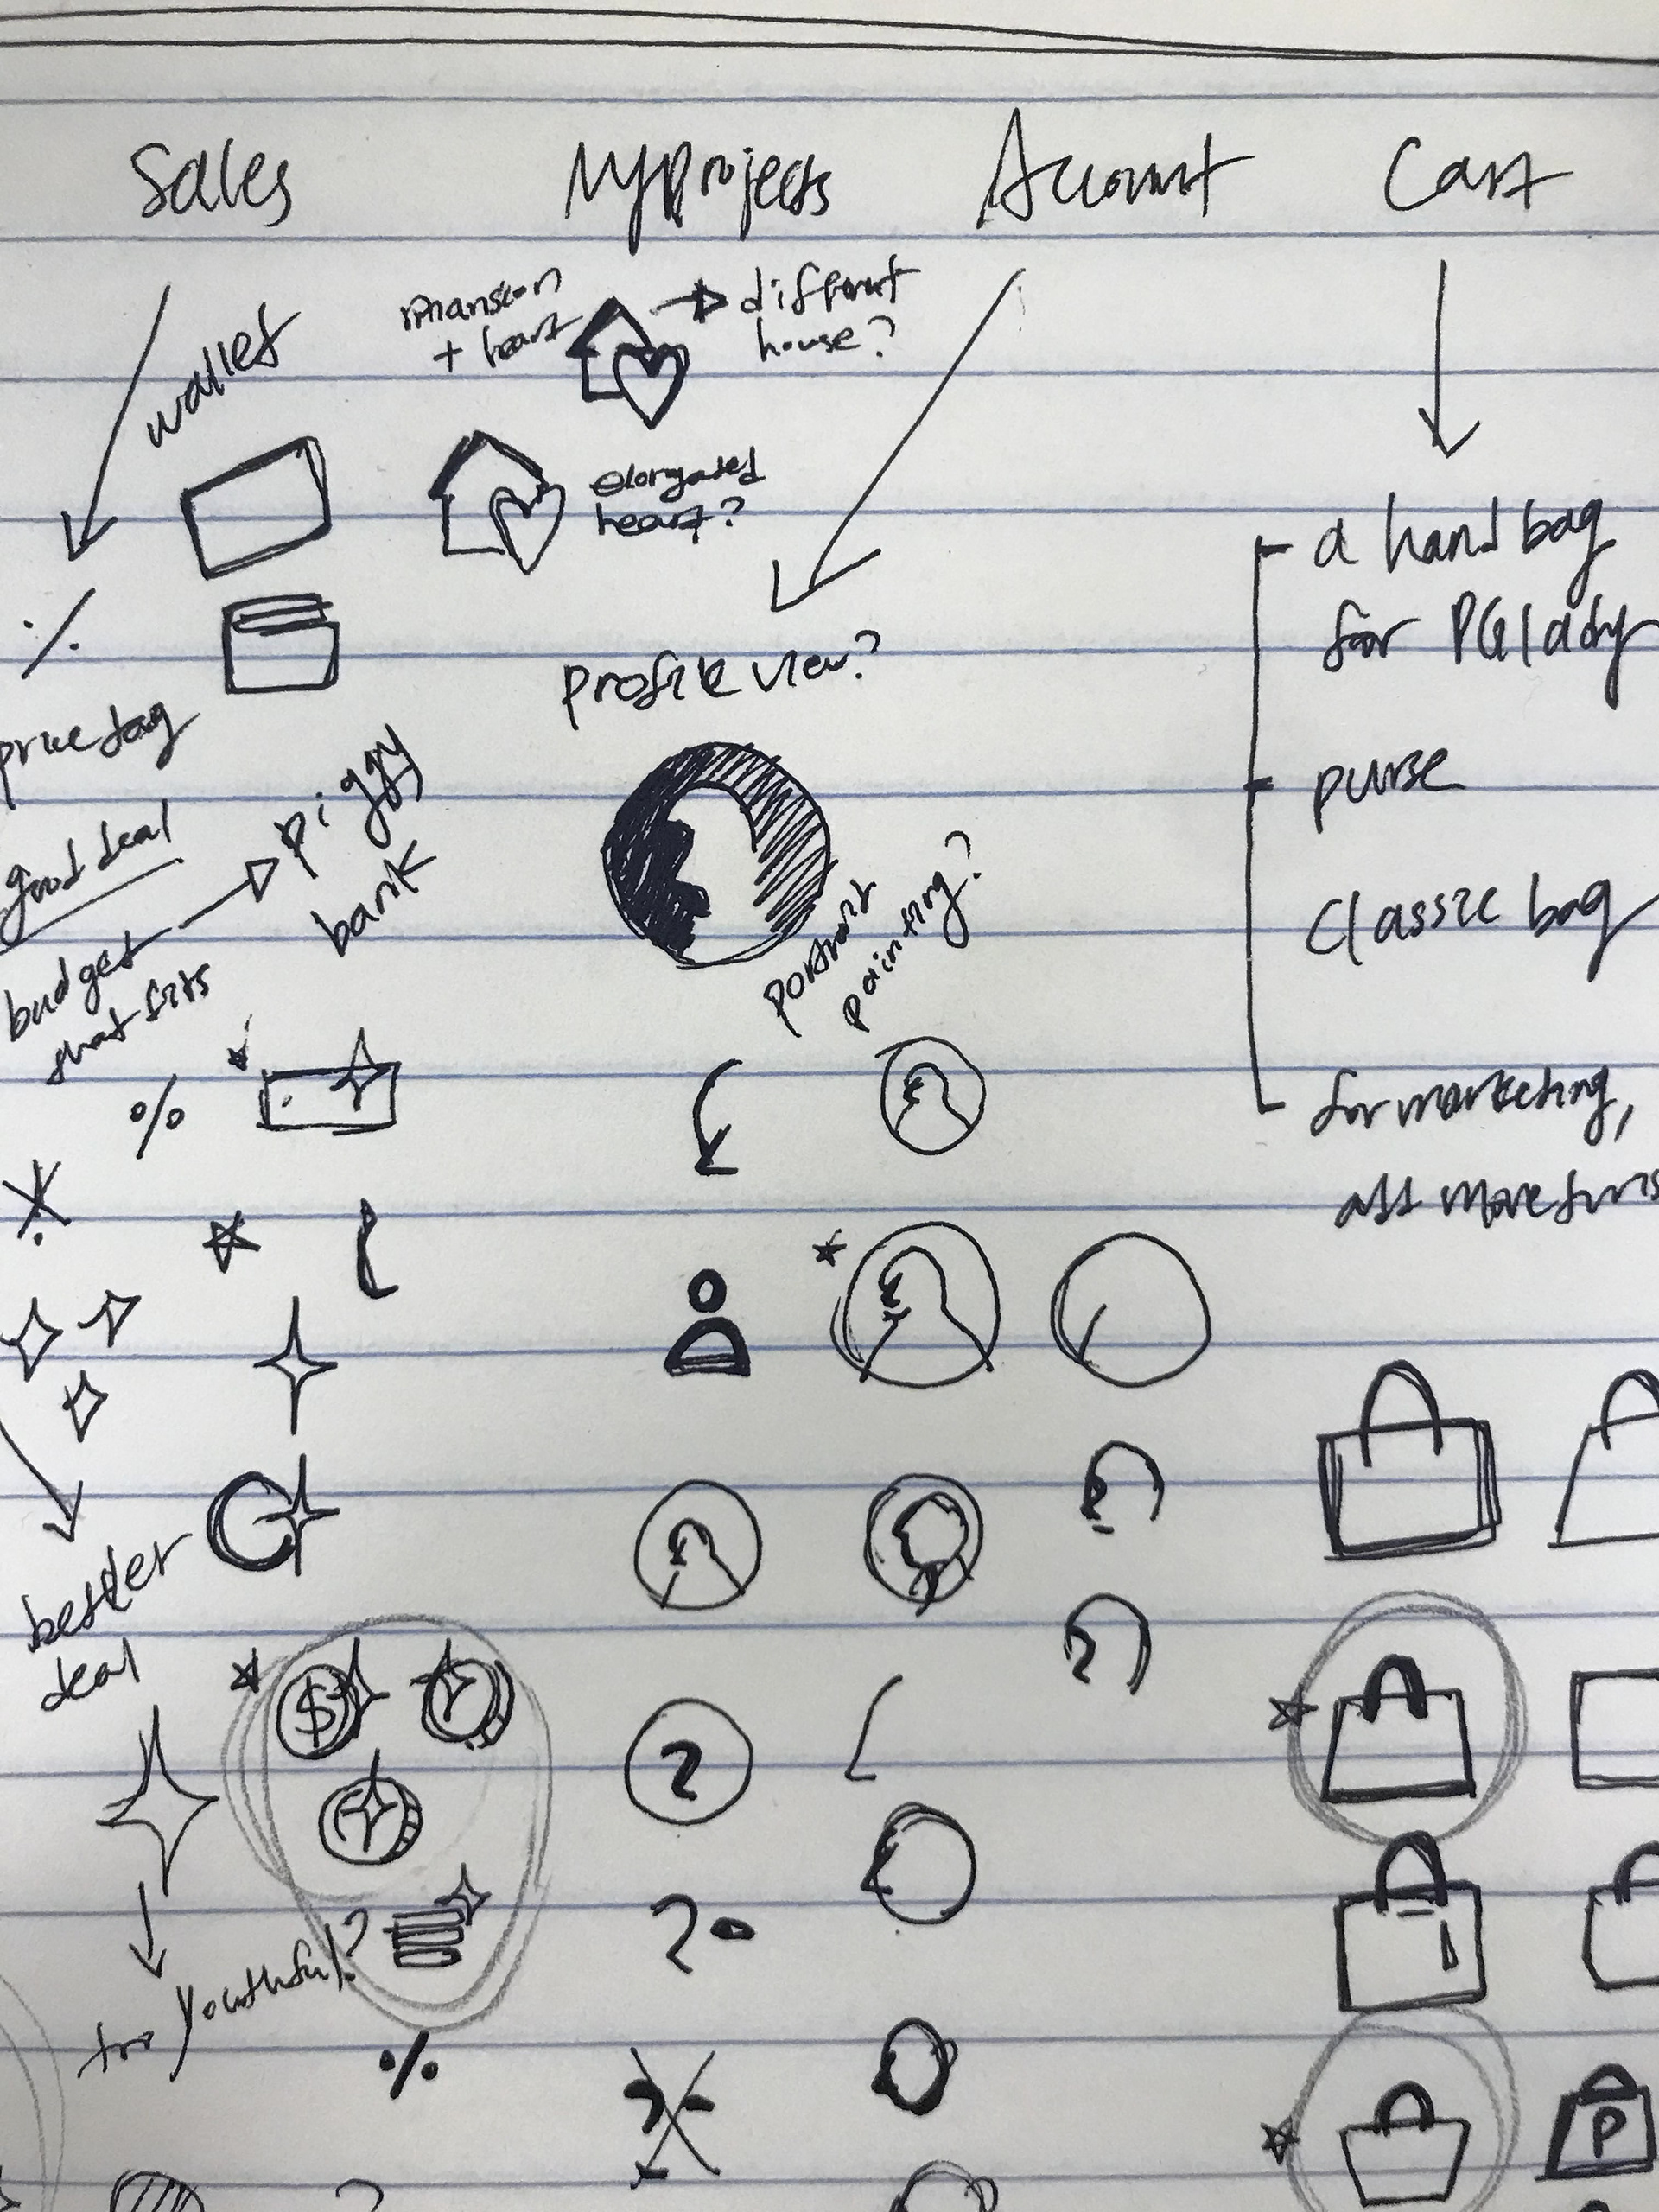 Sales
My Projects
Account
Cart
wallet
mansion
+ heart
different
house?
elongated
heart?
%
price tag
good deal
budget
that fits
piggy
bank
%
better
deal
$
too youthful?
%
profile view?
portrait
painting?
2
2
a hand bag
for PG lady
purse
classic bag
for marketing,
P